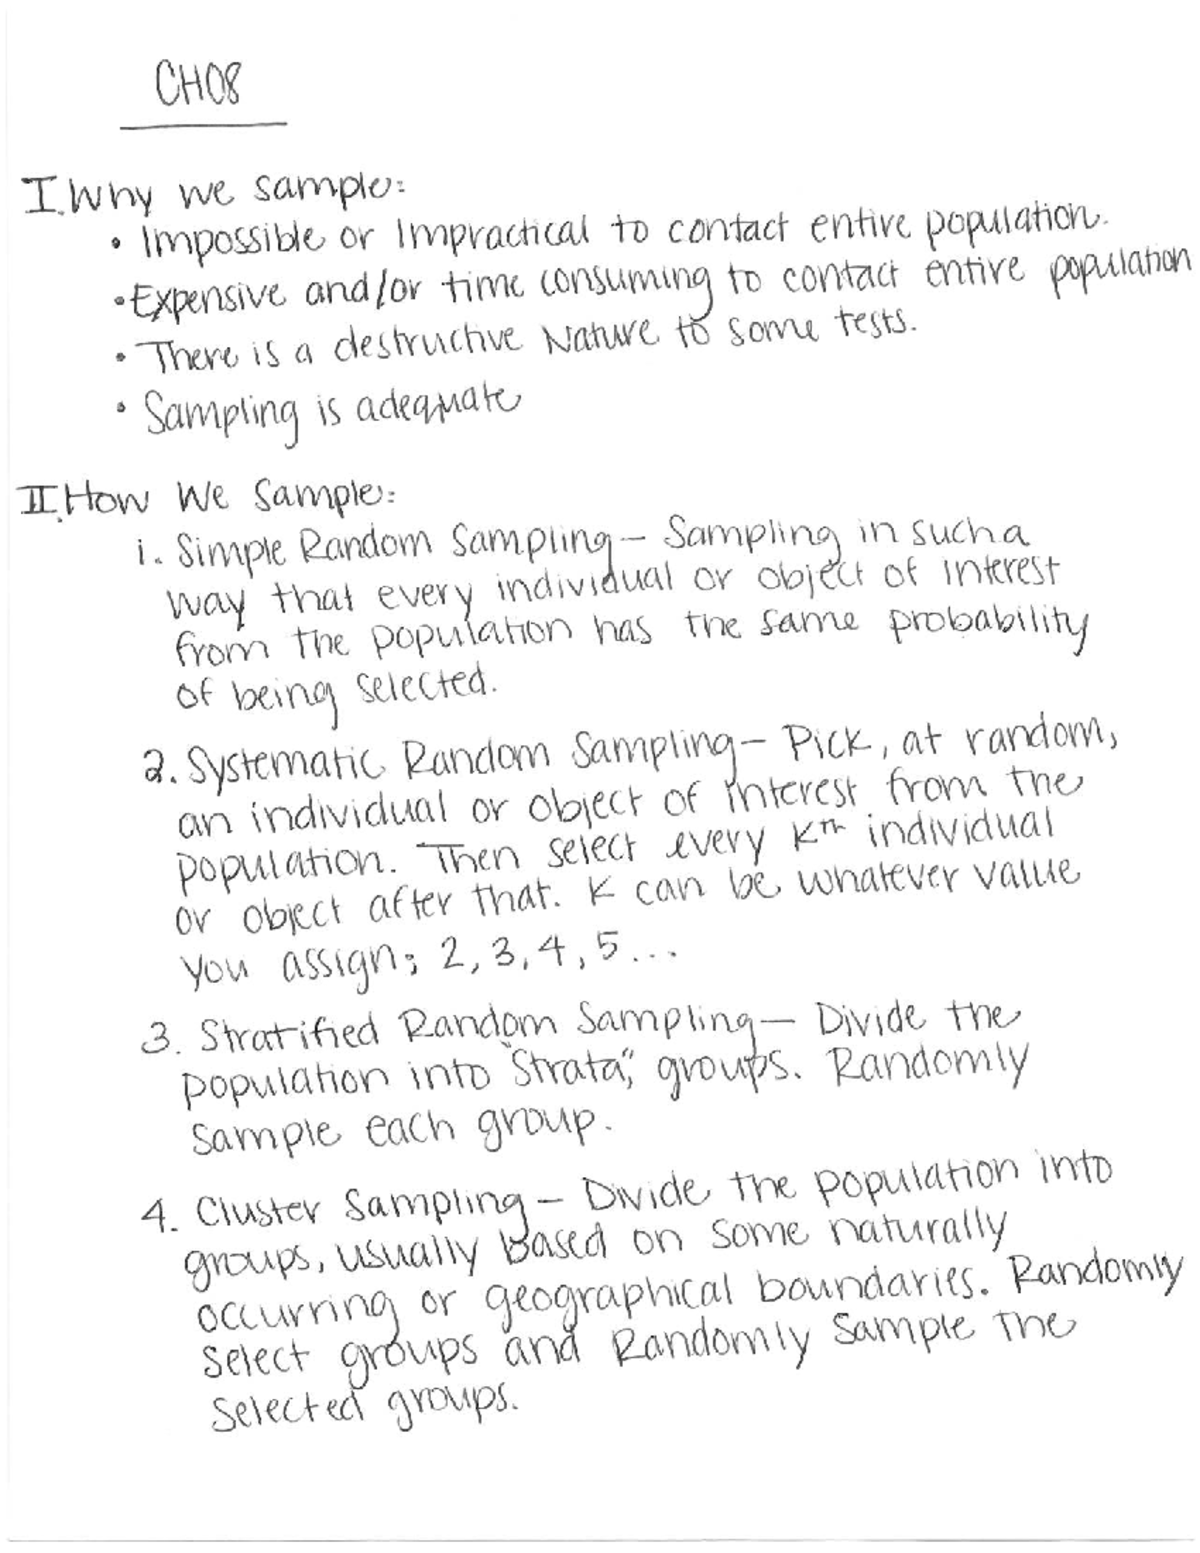 CH08
I. Why we sample:
• Impossible or Impractical to contact entire population.
• Expensive and/or time consuming to contact entire population
• There is a destructive Nature to some tests.
• Sampling is adequate
II. How We Sample:
1. Simple Random Sampling – Sampling in such a
way that every individual or object of interest
from the population has the same probability
of being selected.
2. Systematic Random Sampling – Pick, at random,
an individual or object of interest from the
population. Then select every Kth individual
or object after that. K can be whatever value
you assign; 2, 3, 4, 5...
3. Stratified Random Sampling – Divide the
population into "Strata", groups. Randomly
Sample each group.
4. Cluster Sampling – Divide the population into
groups, usually Based on some naturally
occurring or geographical boundaries. Randomly
Select groups and Randomly Sample the
Selected groups.